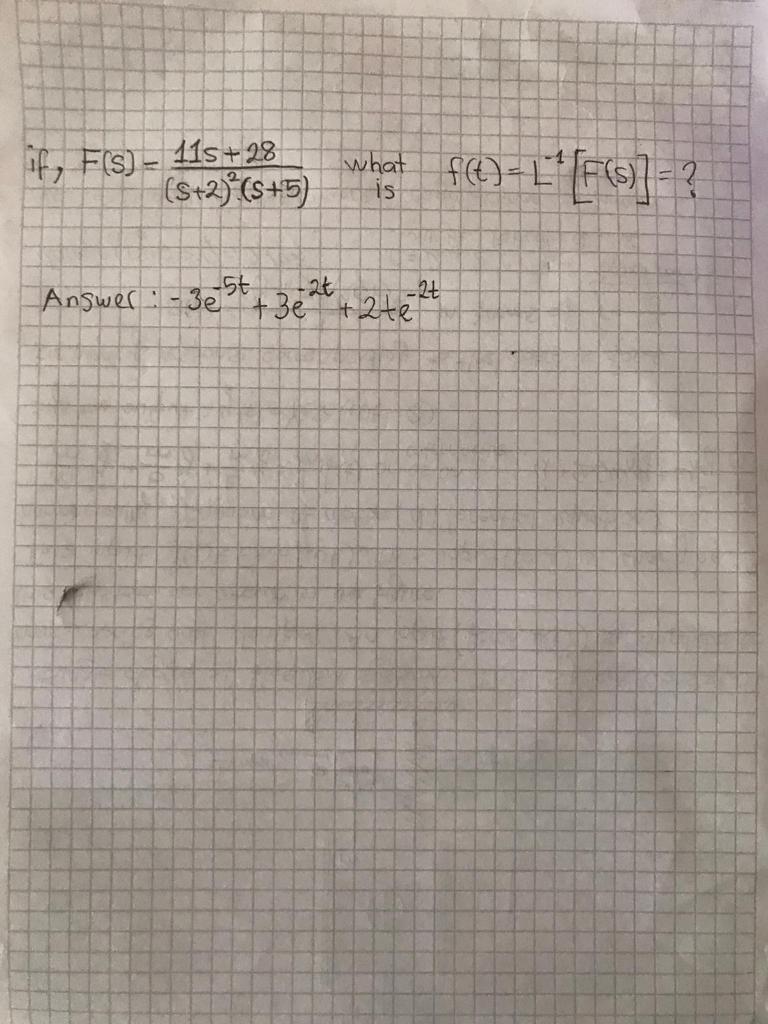 if, F(s) = 11s+28 / (s+2)².(s+5) what is f(t) = L⁻¹ [F(s)] = ?
Answer : -3e⁻⁵ᵗ + 3e⁻²ᵗ + 2te⁻²ᵗ